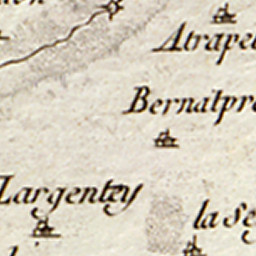 Atrape
Bernatpre
Largentey
la Se